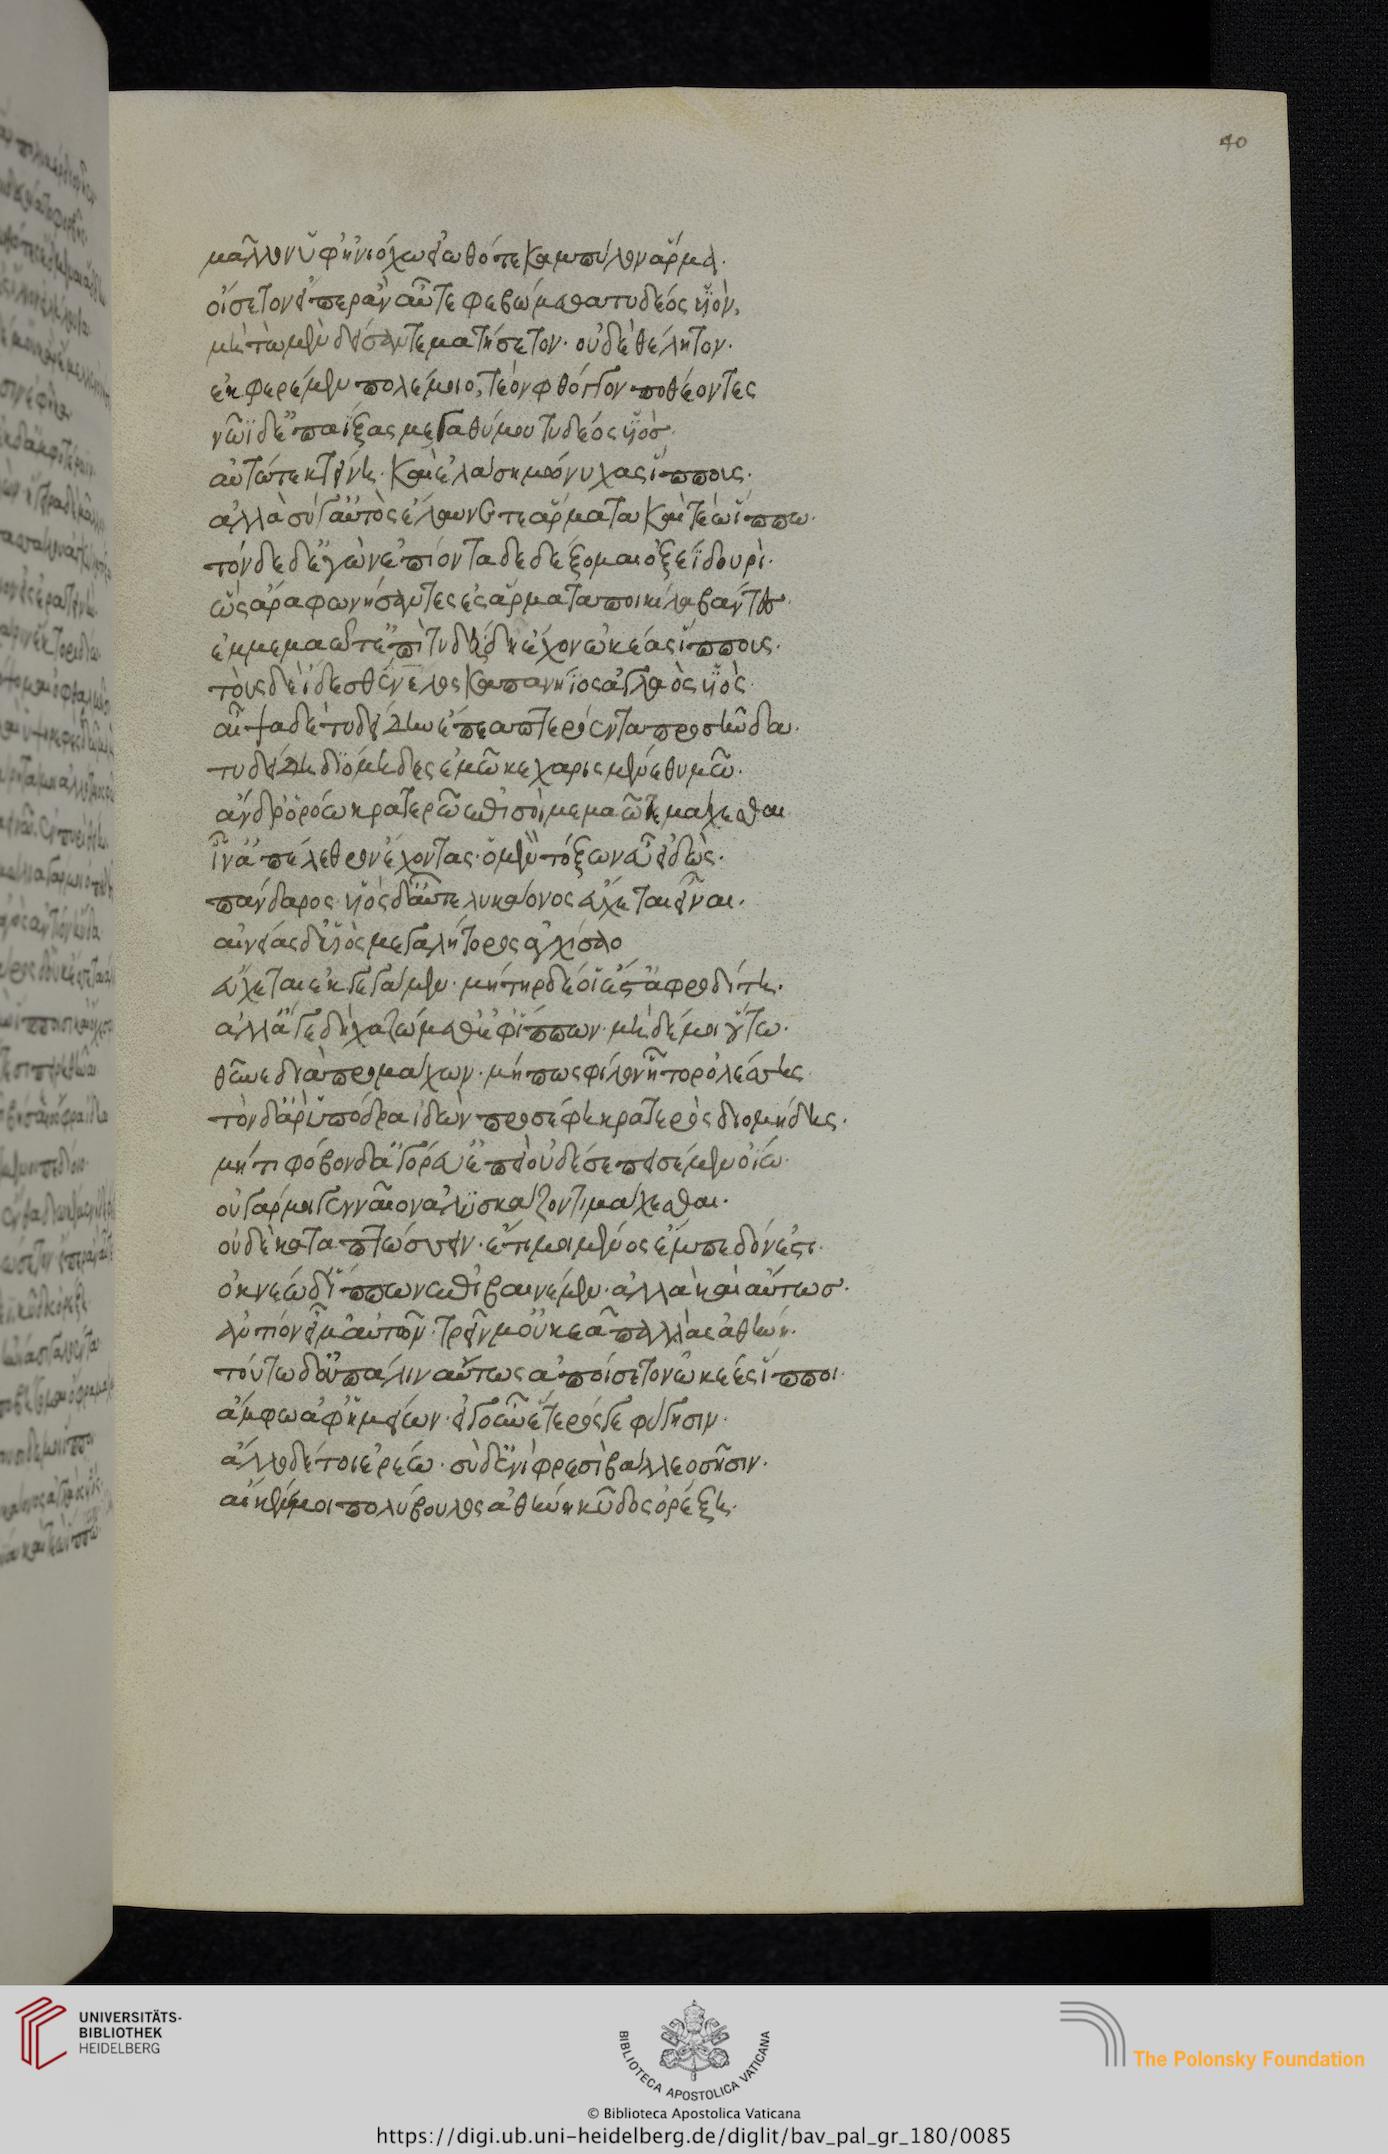 40
μᾶλλον ὑφ' ἡνιόχω εἰωθότι καμπύλον ἅρμα.
οἴσετον εἴπερ ἂν αὖτε φεβώμεθα τυδέος υἱὸν,
μὴ τὼ μὲν δείσαντε ματήσετον. οὐδ' ἐθέλητον.
ἐκφερέμεν πολέμοιο, τεὸν φθόγγον ποθέοντες
νῶϊ δ' ἐπαΐξας μεγαθύμου τυδέος υἱὸσ.
αὐτώ τε κτείνη. καὶ ἐλάσση μώνυχας ἵππους.
ἀλλὰ σύγ' αὐτὸς ἔλαυνε τε' ἅρματα καὶ τεὼ ἵππω.
τόνδε δ' ἐγὼν ἐπιόντα δεδέξομαι ὀξέϊ δουρὶ.
ὣς ἄρα φωνήσαντες ἐς ἅρματα ποικίλα βάντες.
ἐμμεμαῶτ' ἐπὶ τυδείδη ἔχον ὠκέας ἵππους.
τοὺς δὲ ἴδε σθένελος καπανήϊος ἀγλαὸς υἱὸς.
αἶψα δὲ τυδείδην ἔπεα πτερόεντα προσηῦδα.
τυδείδη διόμηδες ἐμῶ κεχαρισμένε θυμῶ.
ἄνδρ' ὁρόω κρατερῶ ἐπὶ σοὶ μεμαῶτε μάχεσθαι
ἶν' ἀπέλεθρον ἔχοντας. ὁ μὲν τόξων εὖ εἰδὼς.
πάνδαρος. υἱὸς δ' αὖτε λυκάονος εὔχεται εἶναι.
αἰνείας δ' υἱὸς μεγαλήτορος ἀγχίσαο
εὔχεται ἐκγεγάμεν. μήτηρ δέ οἵ ἐστ' ἀφροδίτη.
ἀλλ' ἄγε δὴ χαζώμεθ' ἐφ' ἵππων. μὴ δέ μοι οὕτω.
θῦνε διὰ προμάχων. μή πως φίλον ἦτορ ὀλέσσης
τὸν δ' ἄρ' ὑπόδρα ἰδὼν προσέφη κρατερὸς διομήδης.
μήτι φόβονδ' ἀγόρευε ἐπεὶ οὐδέ σε πεισέμεν οἴω.
οὐ γάρ μοι γενναῖον ἀλυσκάζοντι μάχεσθαι.
οὐδὲ καταπτώσσειν. ἔτι μοι μένος ἔμπεδόν ἐστι.
ὀκνέω δ' ἵππων ἐπιβαινέμεν. ἀλλὰ καὶ αὔτωσ.
ἀντίον εἶμ' αὐτῶν. τρεῖν μ' οὐκ ἐᾶ παλλὰς ἀθήνη.
τούτω δ' οὐ πάλιν αὖτις ἀποίσετον ὠκέες ἵπποι.
ἄμφω ἀφ' ἡμείων. εἴ γοὖν ἕτερός γε φύγησιν.
ἄλλο δέ τοι ἐρέω. σὺ δ' ἐνὶ φρεσὶ βάλλεο σῆσιν.
αἴ κέν μοι πολύβουλος ἀθήνη κῦδος ὀρέξη.
UNIVERSITÄTS-
BIBLIOTHEK
HEIDELBERG
BIBLIOTECA APOSTOLICA VATICANA
The Polonsky Foundation
© Biblioteca Apostolica Vaticana
https://digi.ub.uni-heidelberg.de/diglit/bav_pal_gr_180/0085